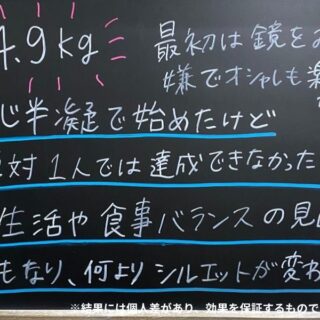 4.9kg
最初は鏡を
嫌でオシャレも楽
じ半凝で始めたけど
対1人では達成できなかった
生活や食事バランスの見
もなり、何よりシルエットが変わ
※結果には個人差があり、効果を保証するもので